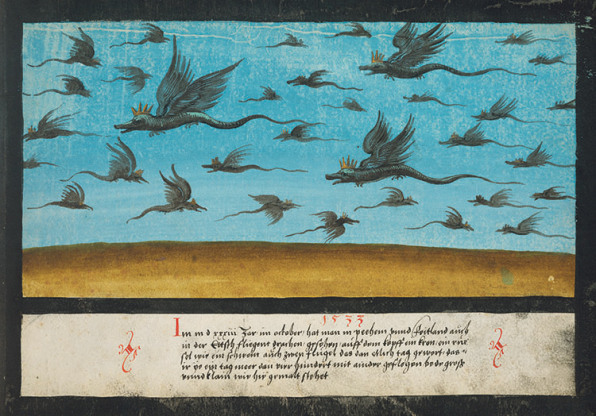 1533
Im m d xxxiii Jar im october hat man in pechem und foitland auch
in der fliegent drachen gesehen auff dem kopff ein kron ein rüs
sel wie ein schwein auch zwen flügel das hat etlich tag gewert das
ir ye ein tag meer dan vier hundert mit ainder gesflogen bede gross
vnnd klain wie hie gemalt stehet